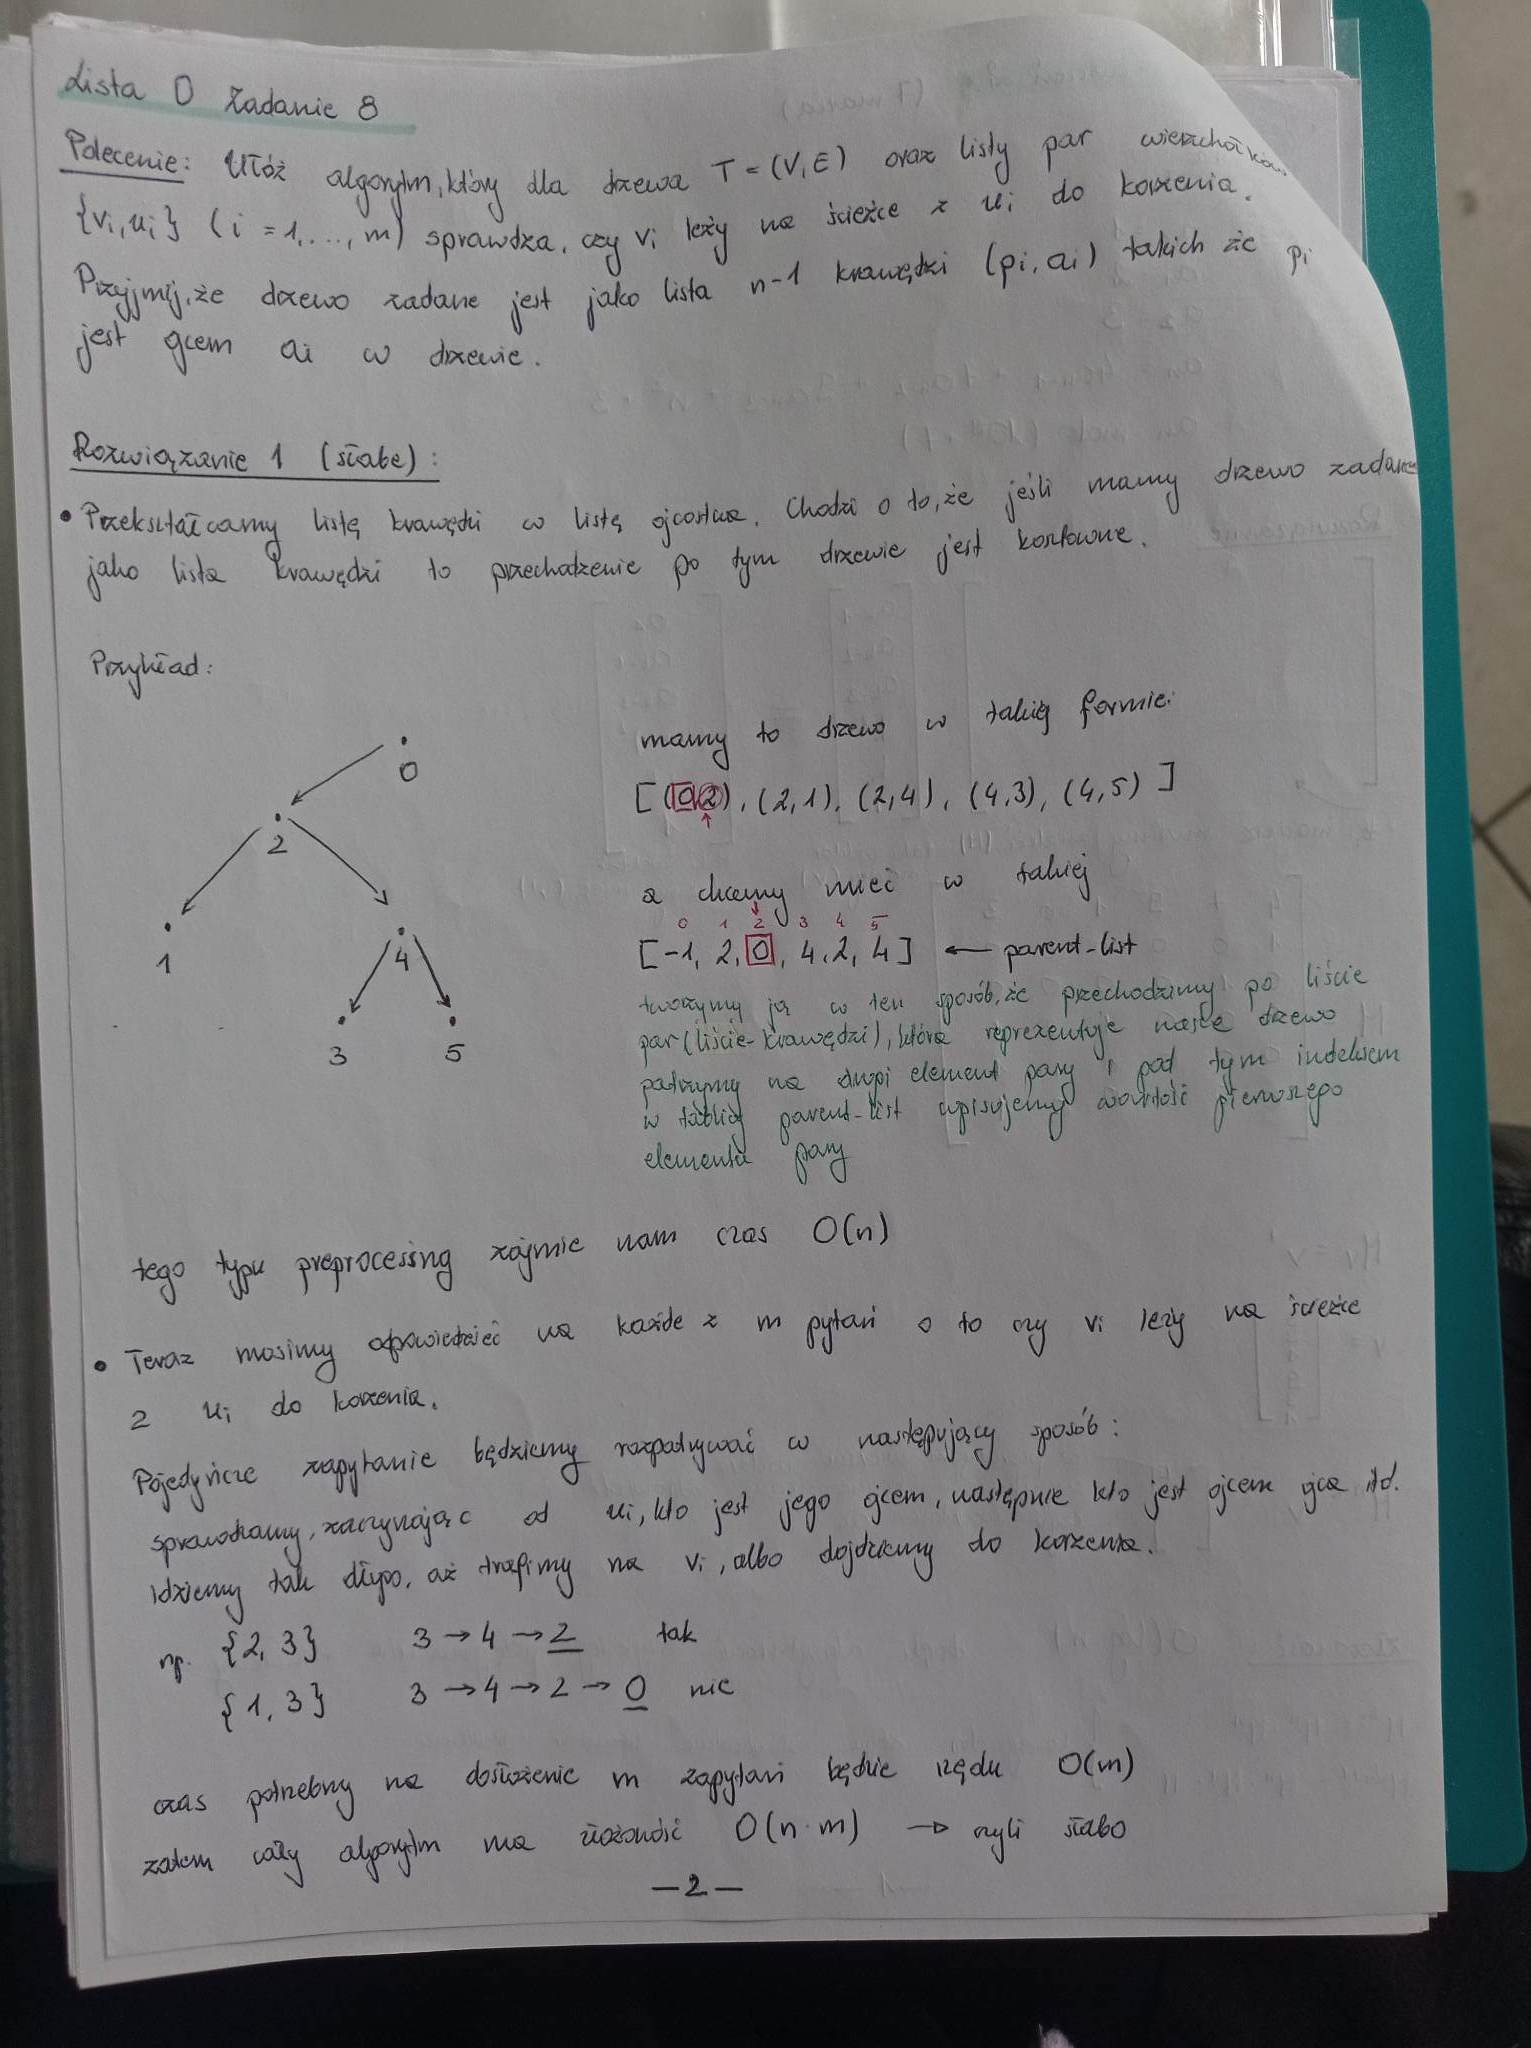 Lista 0 Zadanie 8
Polecenie: Ułóż algorytm, który dla drzewa T = (V, E) oraz listy par wierzchołków
{vi, ui} (i = 1, ..., m) sprawdza, czy vi leży na ścieżce z ui do korzenia.
Przyjmij, że drzewo zadane jest jako lista n-1 krawędzi (pi, ai) takich że pi
jest ojcem ai w drzewie.
Rozwiązanie 1 (słabe):
• Przekształcamy listę krawędzi w listę ojcostwa. Chodzi o to, że jeśli mamy drzewo zadane
jako lista krawędzi to przechodzenie po tym drzewie jest kosztowne.
Przykład:
0
2
1
4
3 5
mamy to drzewo w takiej formie:
[(0,2), (2,1), (2,4), (4,3), (4,5)]
↑
a chcemy mieć w takiej
↓
0 1 2 3 4 5
[-1, 2, 0, 4, 2, 4] ← parent-list
tworzymy ją w ten sposób, że przechodzimy po liście
par (liście-krawędzi), która reprezentuje nasze drzewo
patrzymy na drugi element pary i pod tym indeksem
w tablicy parent-list wpisujemy wartość pierwszego
elementu pary
tego typu preprocessing zajmie nam czas O(n)
• Teraz musimy odpowiedzieć na każde z m pytań o to czy vi leży na ścieżce
z ui do korzenia.
Pojedyńcze zapytanie będziemy rozpatrywać w następujący sposób:
sprawdzamy, zaczynając od ui, kto jest jego ojcem, następnie kto jest ojcem ojca itd.
Idziemy tak długo, aż trafimy na vi, albo dojdziemy do korzenia.
np. {2, 3} 3 → 4 → 2 tak
{1, 3} 3 → 4 → 2 → 0 nie
czas potrzebny na m zapytań będzie rzędu O(m)
zatem cały algorytm ma złożoność O(n·m) → czyli słabo
— 2 —